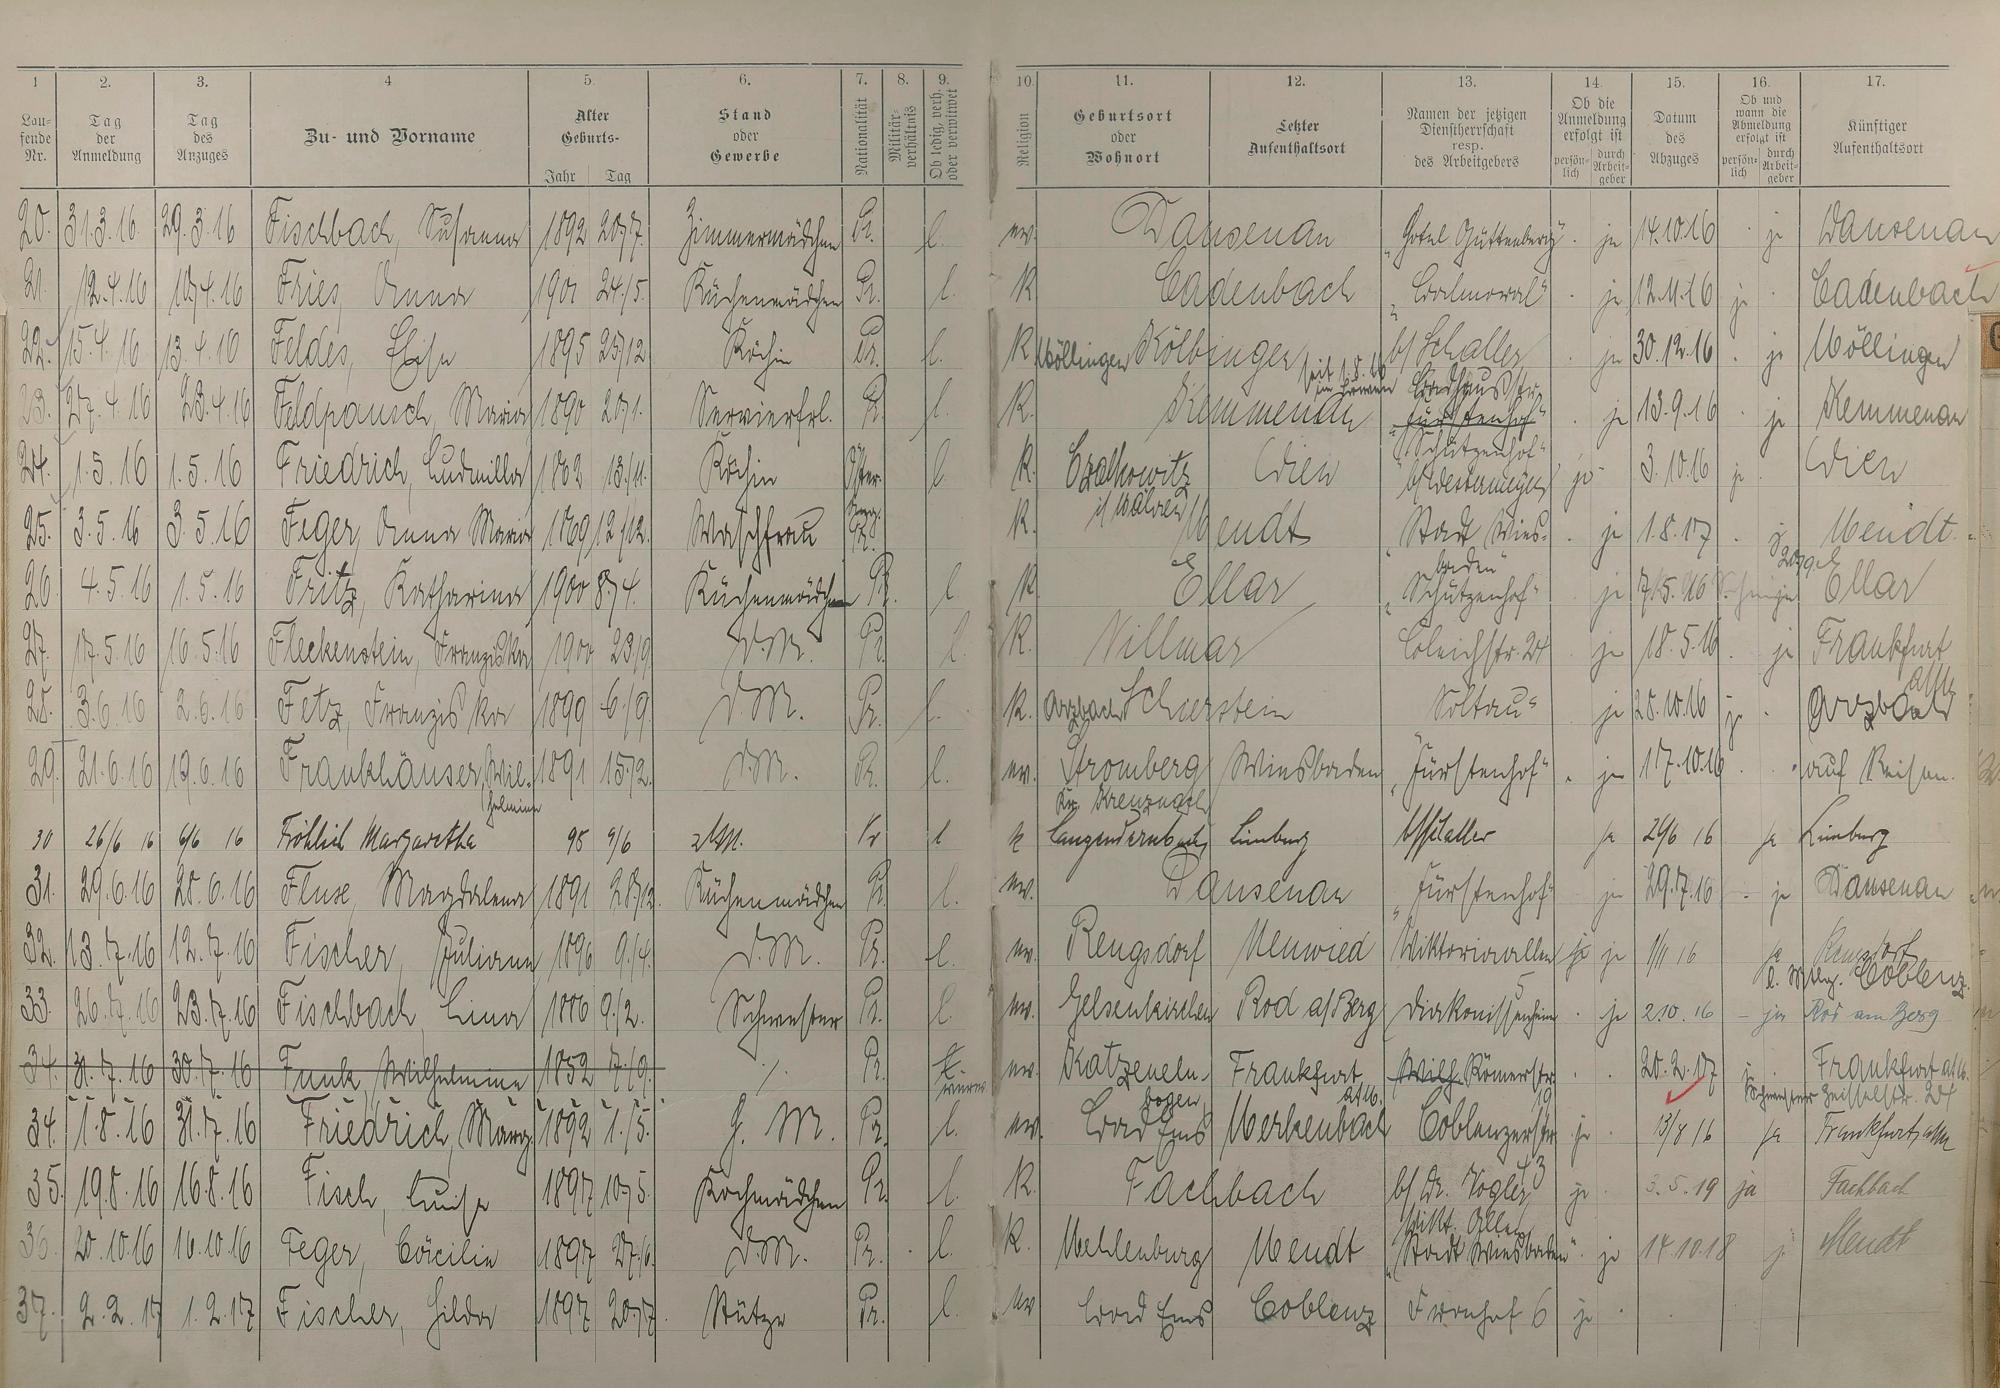 1 2. 3. 4 5 6. 7. 8. 9. 10. 11. 12. 13. 14. 15. 16. 17.
Laufende Nr. Tag der Anmeldung Tag des Anzuges Zu- und Vorname Alter Geburts- Jahr Tag Stand oder Gewerbe Nationalität Militärverhältnis Ob ledig, verh. oder verwitwet Religion Geburtsort oder Wohnort Letzter Aufenthaltsort Namen der jetzigen Dienstherrschaft resp. des Arbeitgebers Ob die Anmeldung erfolgt ist persönlich durch Arbeitgeber Datum des Abzuges Ob und wann die Abmeldung erfolgt ist persönlich durch Arbeitgeber Künftiger Aufenthaltsort
20. 31.3.16 29.3.16 Fischbach, Susanna 1892 20/7. Zimmermädchen Pr. l. ev. Dausenau "Hotel Guttenberg" . ja 14.10.16 . ja Dausenau
21. 12.4.16 10/4.16 Fries, Anna 1901 24/5. Küchenmädchen Pr. l. K Cadenbach "Balmoral" . ja 12.11.16 ja . Cadenbach
22. 15.4.16 13.4.16 Feldes, Elise 1895 25/12 Köchin Pr. l. K Möllingen Kölbingen b/ Schaller . ja 30.12.16 . ja Möllingen
23. 27.4.16 23.4.16 Feldpausch, Maria 1890 20/1. Servierfrl. Pr. l. K. Kemmenau seit 1.8.16 Badhausstr. "Fürstenhof" . ja 13.9.16 . ja Kemmenau
24. 1.5.16 1.5.16 Friedrich, Ludmilla 13/11. Köchin Öster. l K. i/ Mähren Wien "Schützenhof" ja 3.10.16 ja . Wien
25. 3.5.16 3.5.16 Feger, Anna Maria 1869 12/12. Waschfrau Pr. K. Mendt "Stadt Wiesbaden" . ja 1.8.17 . j Mendt
26. 4.5.16 1.5.16 Fritz, Katharina 1900 8/4. Küchenmädchen Pr. l. K. Ellar "Schützenhof" ja Ellar
27. 17.5.16 16.5.16 Fleckenstein, Franziska 1900 23/9 D.M. Pr. l. K. Villmar Bleichstr. 24 . ja 18.5.16 . ja Frankfurt a/M.
28. 3.6.16 2.6.16 Fetz, Franziska 1899 6/9. D.M. Pr. l. K. Arzbach Schierstein "Soltau" ja 28.10.16 ja . Arzbach
29. 21.6.16 19.6.16 Frankhäuser, Wilhelmine 1891 15/2. D.M. Pr. l. ev. Stromberg Kr. Kreuznach Wiesbaden "Fürstenhof" . ja 17.10.16 . . auf Reisen.
30 26/6 16 6/6 16 Fröhlich Margaretha 98 9/6 D.M. Pr l k Langendernbach Limburg b/Schaller ja 29/6 16 ja Limburg
31. 29.6.16 28.6.16 Fluse, Magdalena 1891 28/12. Küchenmädchen Pr. l. ev. Dausenau "Fürstenhof" ja 29.7.16 - ja Dausenau
32. 13.7.16 12.7.16 Fischer, Juliane 1896 9/4. D.M. Pr. l. ev. Rengsdorf Neuwied Viktoriaallee 5 ja ja 1/11 16 ja Coblenz.
33. 26.7.16 23.7.16 Fischbach, Lina 1886 9/2. Schwester Pr. l. ev. Gelsenkirchen Rod a/Berg Diakonissenheim . ja 2.10.16 - ja Rod am Berg
34. 31.7.16 30.7.16 Funk, Wilhelmine 1852 7/9. ./. Pr. ev. Katzenelnbogen Frankfurt a/M. Wilh Römerstr. 19 . . 20.2.17 . Frankfurt a/M.
34. 1.8.16 31.7.16 Friedrich, Marg. 1892 1./5. H. M. Pr. l. ev. Bad Ems Merkenbach Coblenzerstr. 43 ja . 13/8 16 ja Frankfurt a/M
35. 19.8.16 16.8.16 Fisch, Luise 1897 10/5. Kochmädchen Pr. l. K. Fachbach b/ Dr. Vogler Vikt. Allee ja . 3.5.19 ja Fachbach
36. 20.10.16 16.10.16 Feger, Cäcilie 1897 27/6. D.M. Pr. . l. K. Mehlenburg Mendt "Stadt Wiesbaden" . ja 14.10.18 j Mendt
37. 2.2.17 1.2.17 Fischer, Hilda 1897 20/7. Stütze Pr. l. ev Bad Ems Coblenz Fronhof 6 ja .